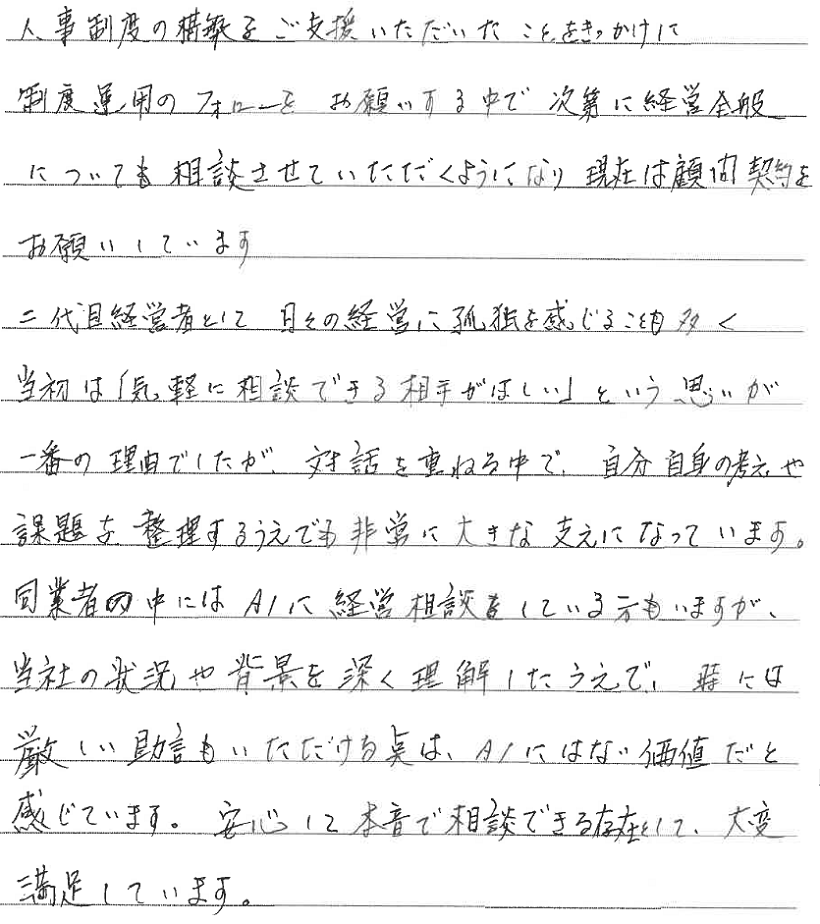 人事制度の構築をご支援いただいたことをきっかけに
制度運用のフォローを お願いする中で 次第に経営全般
についても 相談させていただくようになり 現在は顧問契約を
お願いしています
二代目経営者として 日々の経営に孤独を感じることも多く
当初は「気軽に相談できる相手がほしい」という思いが
一番の理由でしたが、対話を重ねる中で、自分自身の考えや
課題を整理するうえでも非常に大きな支えになっています。
同業者の中にはAIに経営相談をしている方もいますが、
当社の状況や背景を深く理解したうえで、時には
厳しい助言もいただける点は、AIにはない価値だと
感じています。安心して本音で相談できる存在として、大変
満足しています。